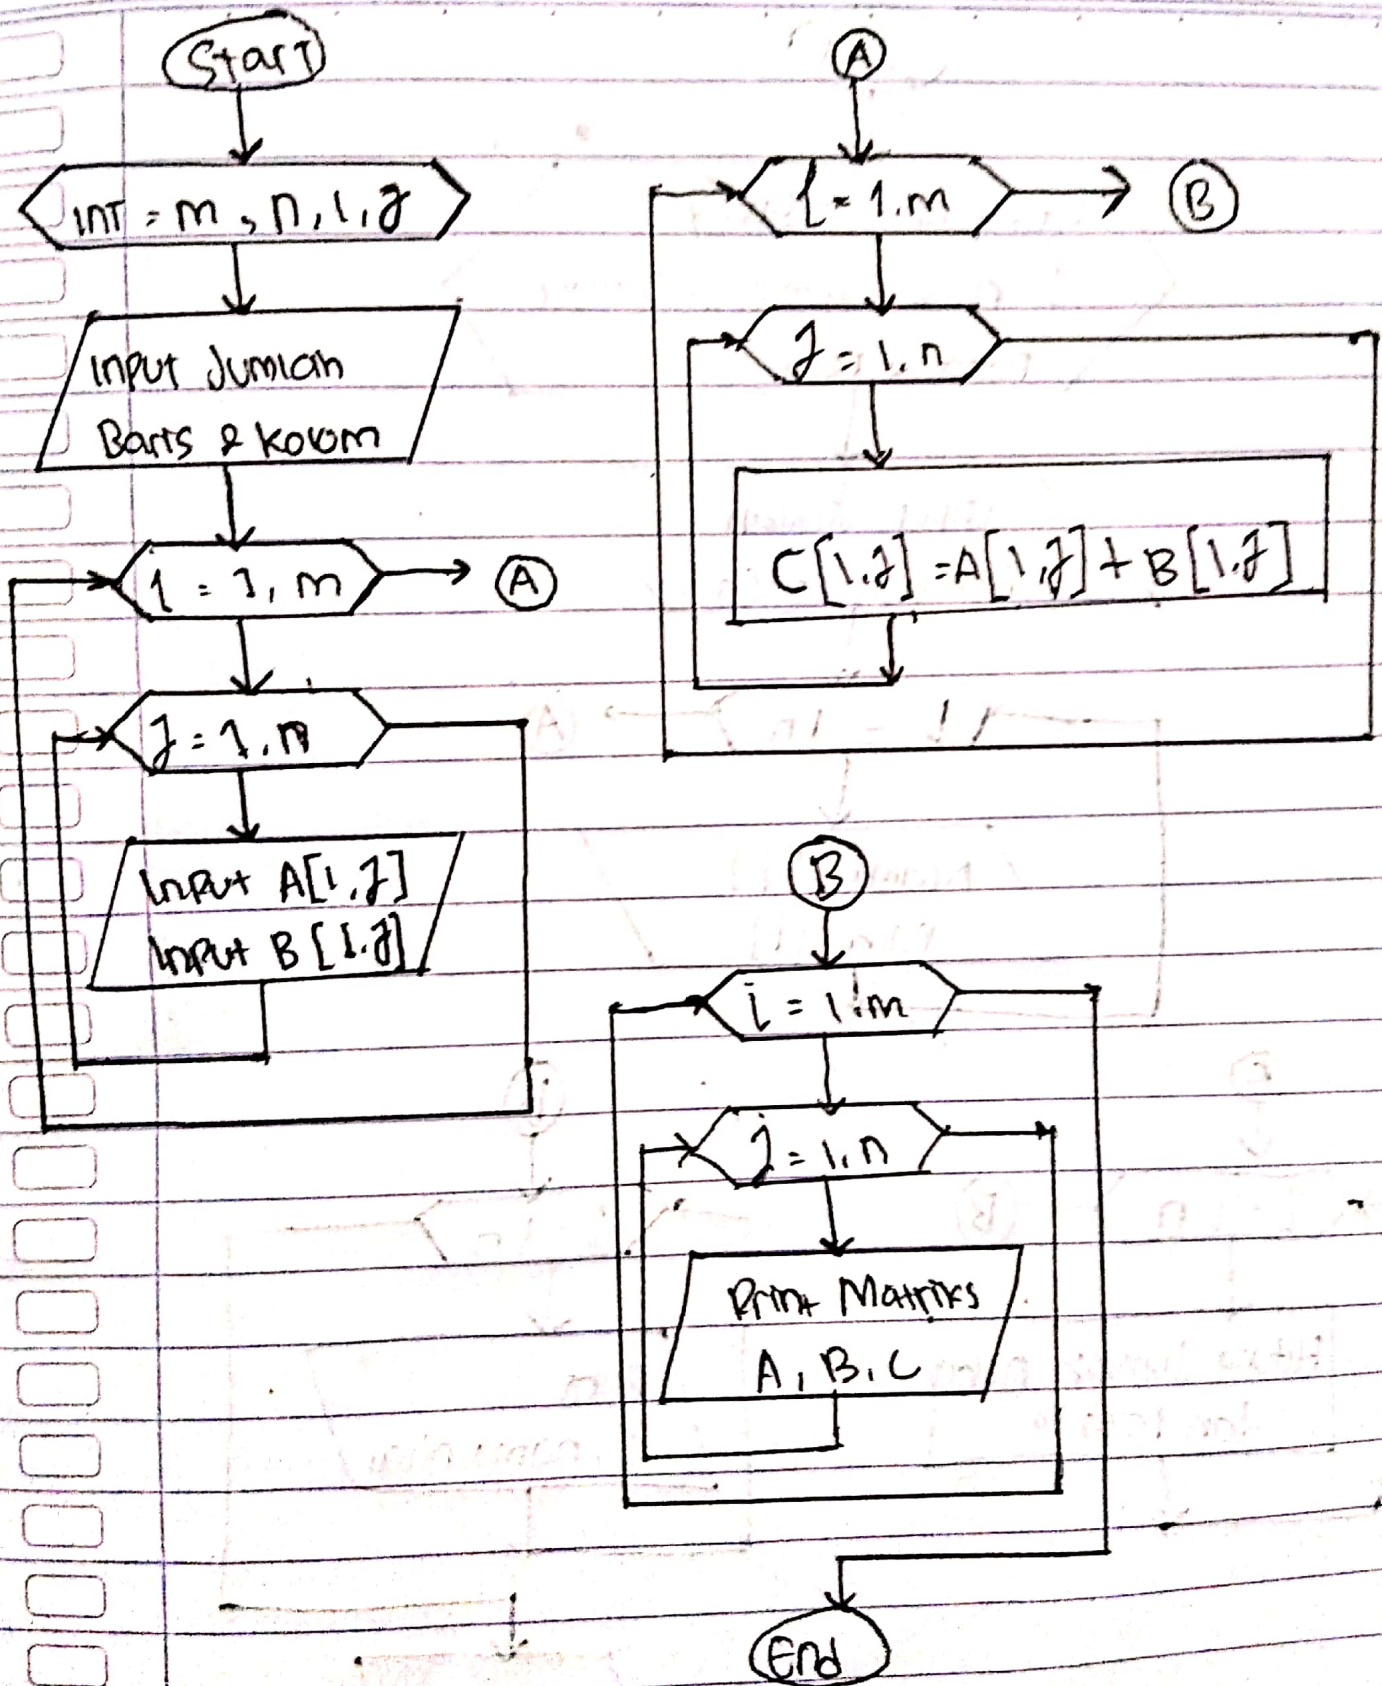 Start
INT = m, n, i, j
Input Jumlah
Baris & Kolom
i = 1, m
A
j = 1, n
Input A[i,j]
Input B[i.j]
A
i = 1.m
B
j = 1.n
C[i.j] = A[i,j] + B[i.j]
B
i = 1.m
j = 1.n
Print Matriks
A, B, C
End